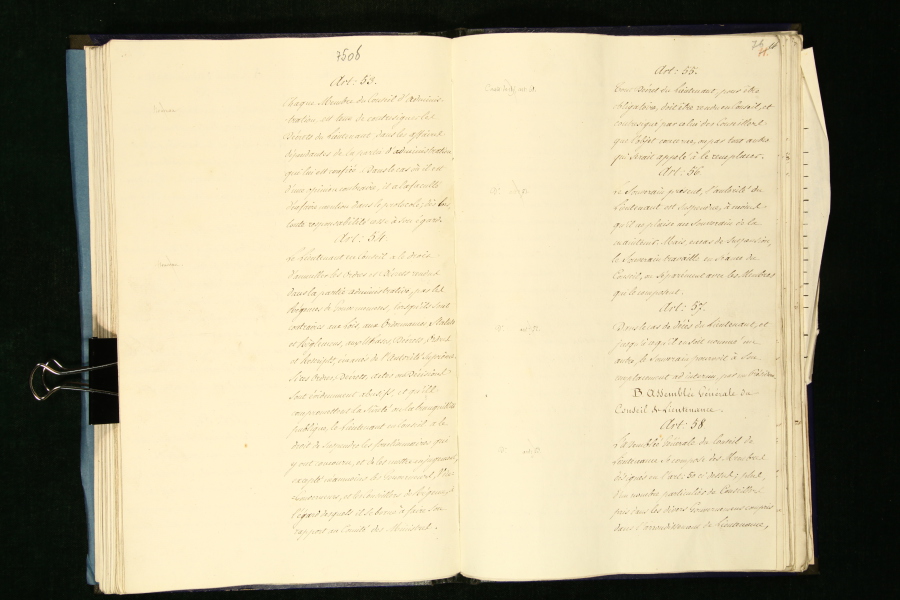 7506
Art: 53.
Chaque Membre du Conseil d'Adminis-
tration est tenu de contresigner les
Décrets du Lieutenant dans les affaires
dépendantes de la partie d'administration,
qui lui est confiée. Dans le cas où il est
d'une opinion contraire, il a la faculté
d'en faire mention dans le protocole; dès lors
toute responsabilité cesse à son égard.
Art: 54.
Le Lieutenant en Conseil a le droit
d'annuller les Ordres et Décrets rendus
dans la partie administrative, par les
Régences de Gouvernements, lorsqu'ils sont
contraires aux lois, aux Ordonnances, Statuts
et Règlemens, aux Oukases, Décrets, Ordres
et Rescripts, émanés de l'Autorité Suprême.
Si ces Ordres, Décrets, ou décisions
sont évidemment et qu'ils
compromettent la Sûreté ou la tranquillité
publique, le Lieutenant en Conseil a le
droit de suspendre les fonctionnaires qui
y ont concouru, et de les mettre en jugement,
excepté néanmoins les Gouverneurs, Vice-
Gouverneurs, et les Conseillers de Régence, à
l'égard desquels il se borne à faire son
rapport au Comité des Ministres.
Art: 55.
Tout Décret du Lieutenant, pour être
obligatoire, doit être rendu en Conseil, et
contresigné par celui des Conseillers
que l'objet concerne, ou par tout autre
qui serait appelé à le remplacer.
Art: 56.
Le Souverain présent, l'autorité du
Lieutenant est suspendue, à moins
qu'il ne plaise au Souverain de la
maintenir. Mais en cas de suspension,
le Souverain travaille en séance du
Conseil, ou séparément avec les Membres
qui le composent.
Art: 57.
Dans le cas de décès du Lieutenant, et
jusqu'à ce qu'il en soit nommé un
autre, le Souverain pourvoit à son
remplacement ad interim, par un Président.
B Assemblée Générale du
Conseil de Lieutenance.
Art: 58
L'Assemblée Générale du Conseil de
Lieutenance se compose des Membres
désignés en l'art: 50 ci dessus; et
d'un nombre particulier de Conseillers,
pris dans les divers Gouvernemens compris
dans l'arrondissement de Lieutenance,